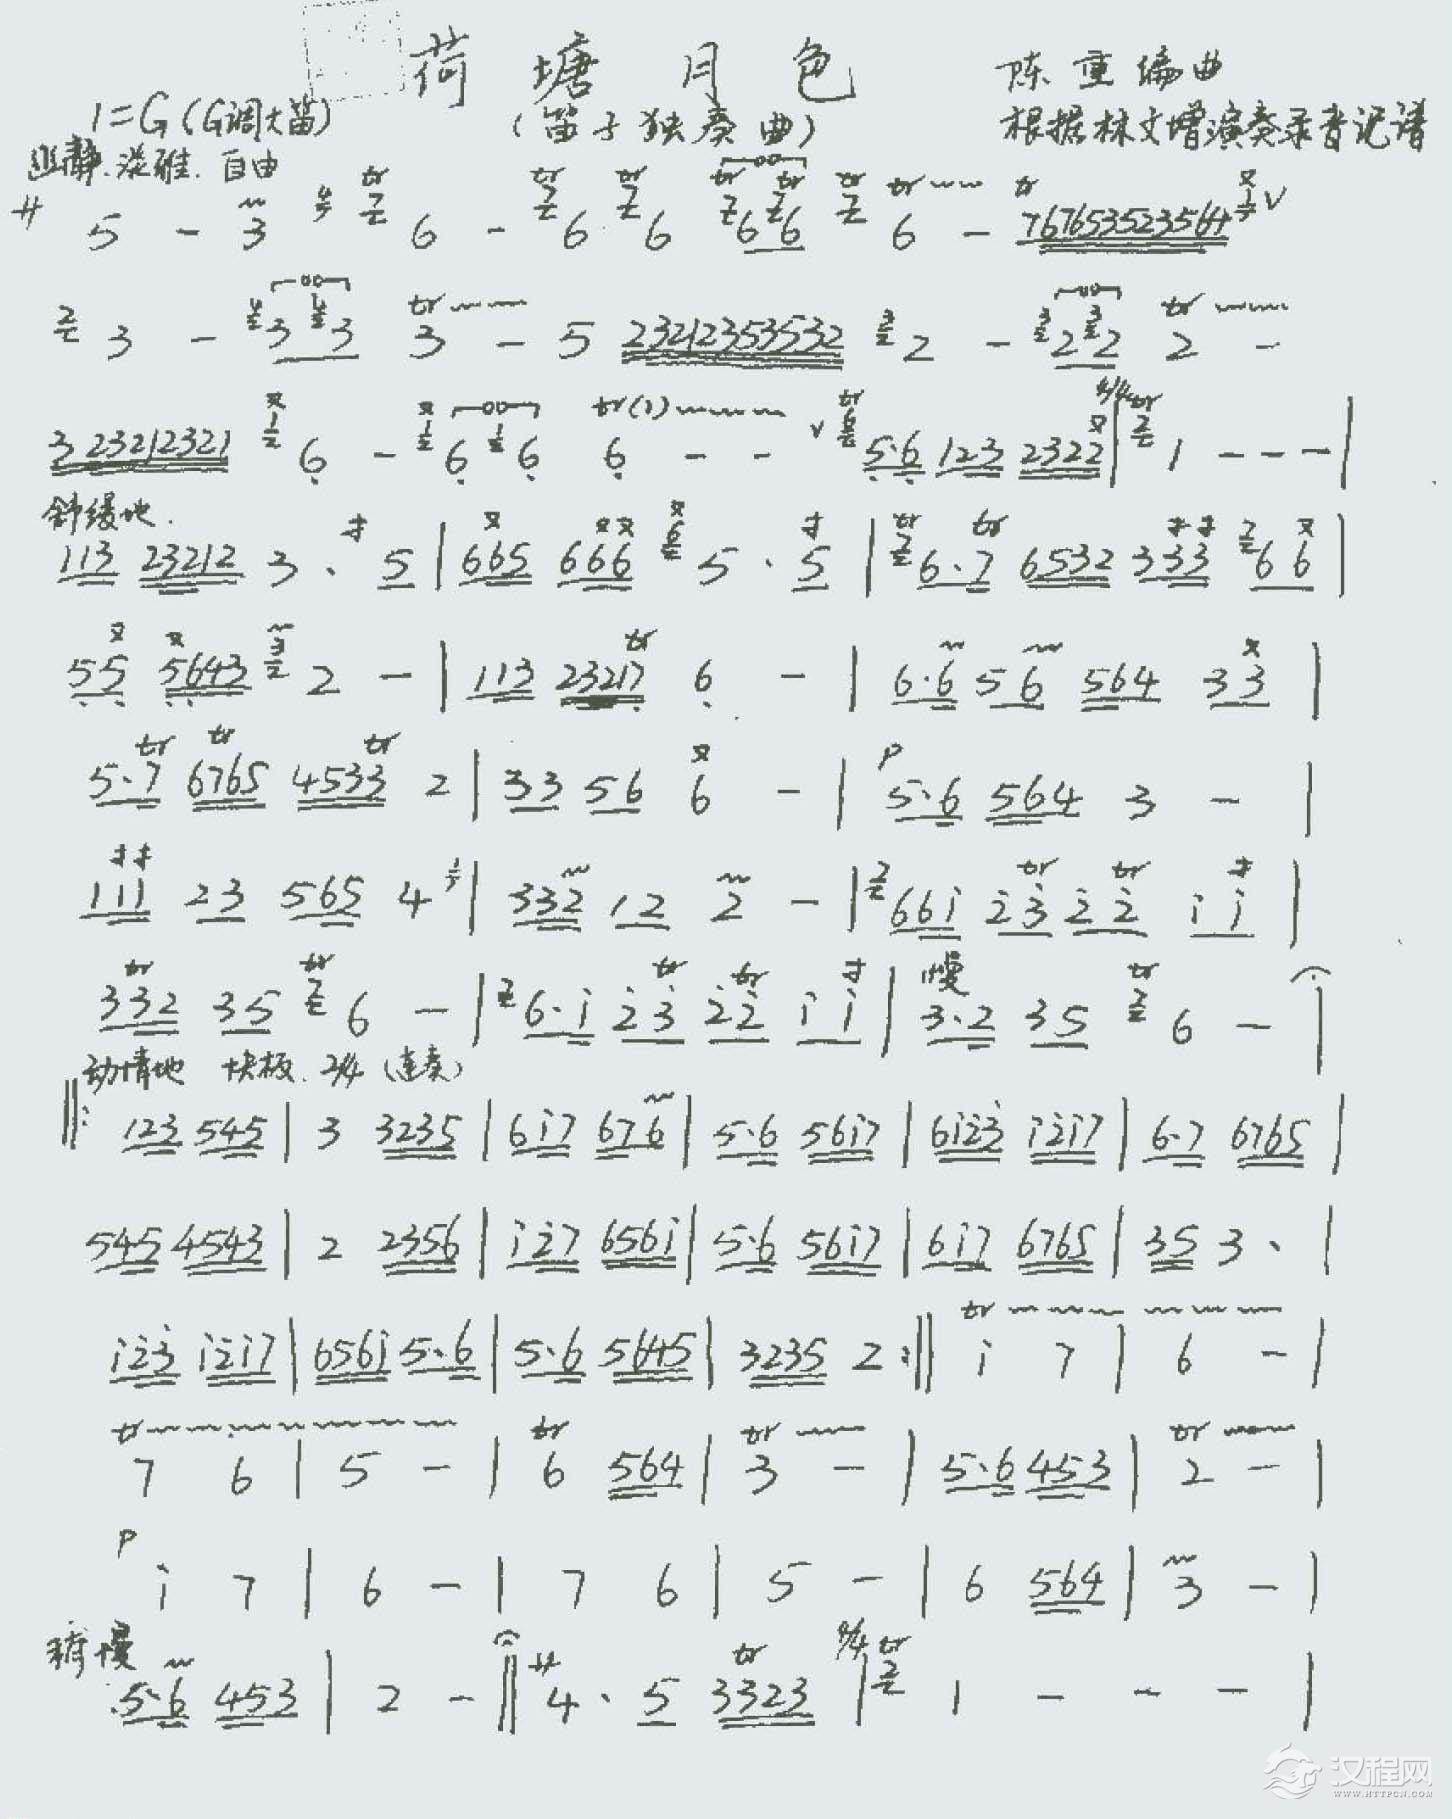 荷塘月色
陈重编曲
1=G(G调大笛)
(笛子独奏曲)
根据林文增演奏录音记谱
幽静.淡雅.自由
サ 5 - 3 6 - 6 6 6 6 6 - 767653523564 V
3 - 3 3 3 - 5 23212353532 2 - 2 2 2 -
3 23212321 6 - 6 6 6 - - V 5·6 123 2322 | 4/4 1 - - - |
舒缓地.
113 23212 3 · 5 | 665 666 5 · 5 | 6·7 6532 333 66 |
55 5643 2 - | 113 23217 6 - | 6·6 56 564 33 |
5·7 6765 4533 2 | 33 56 6 - | P 5·6 564 3 - |
111 23 565 4 | 332 12 2 - | 66i 2̇3̇ 2̇2̇ i i |
332 35 6 - | 6·i 2̇3̇ 2̇2̇ i i | 慢 3·2 35 6 - |
动情地 快板. 2/4 (连奏)
‖: 123 545 | 3 3235 | 6i7 676 | 5·6 56i7 | 6i2̇3̇ i2̇i7 | 6·7 6765 |
545 4543 | 2 2356 | i2̇7 656i | 5·6 56i7 | 6i7 6765 | 35 3 · |
i2̇3̇ i2̇i7 | 656i 5·6 | 5·6 5645 | 3235 2 :‖ tr i 7 | 6 - |
tr 7 6 | 5 - | tr 6 564 | tr 3 - | 5·6 453 | tr 2 - |
P i 7 | 6 - | 7 6 | 5 - | 6 564 | 3 - |
稍慢
5·6 453 | 2 - ‖ サ 4 · 5 3323 | 1 - - - |
汉程网
WWW.HTTPCN.COM